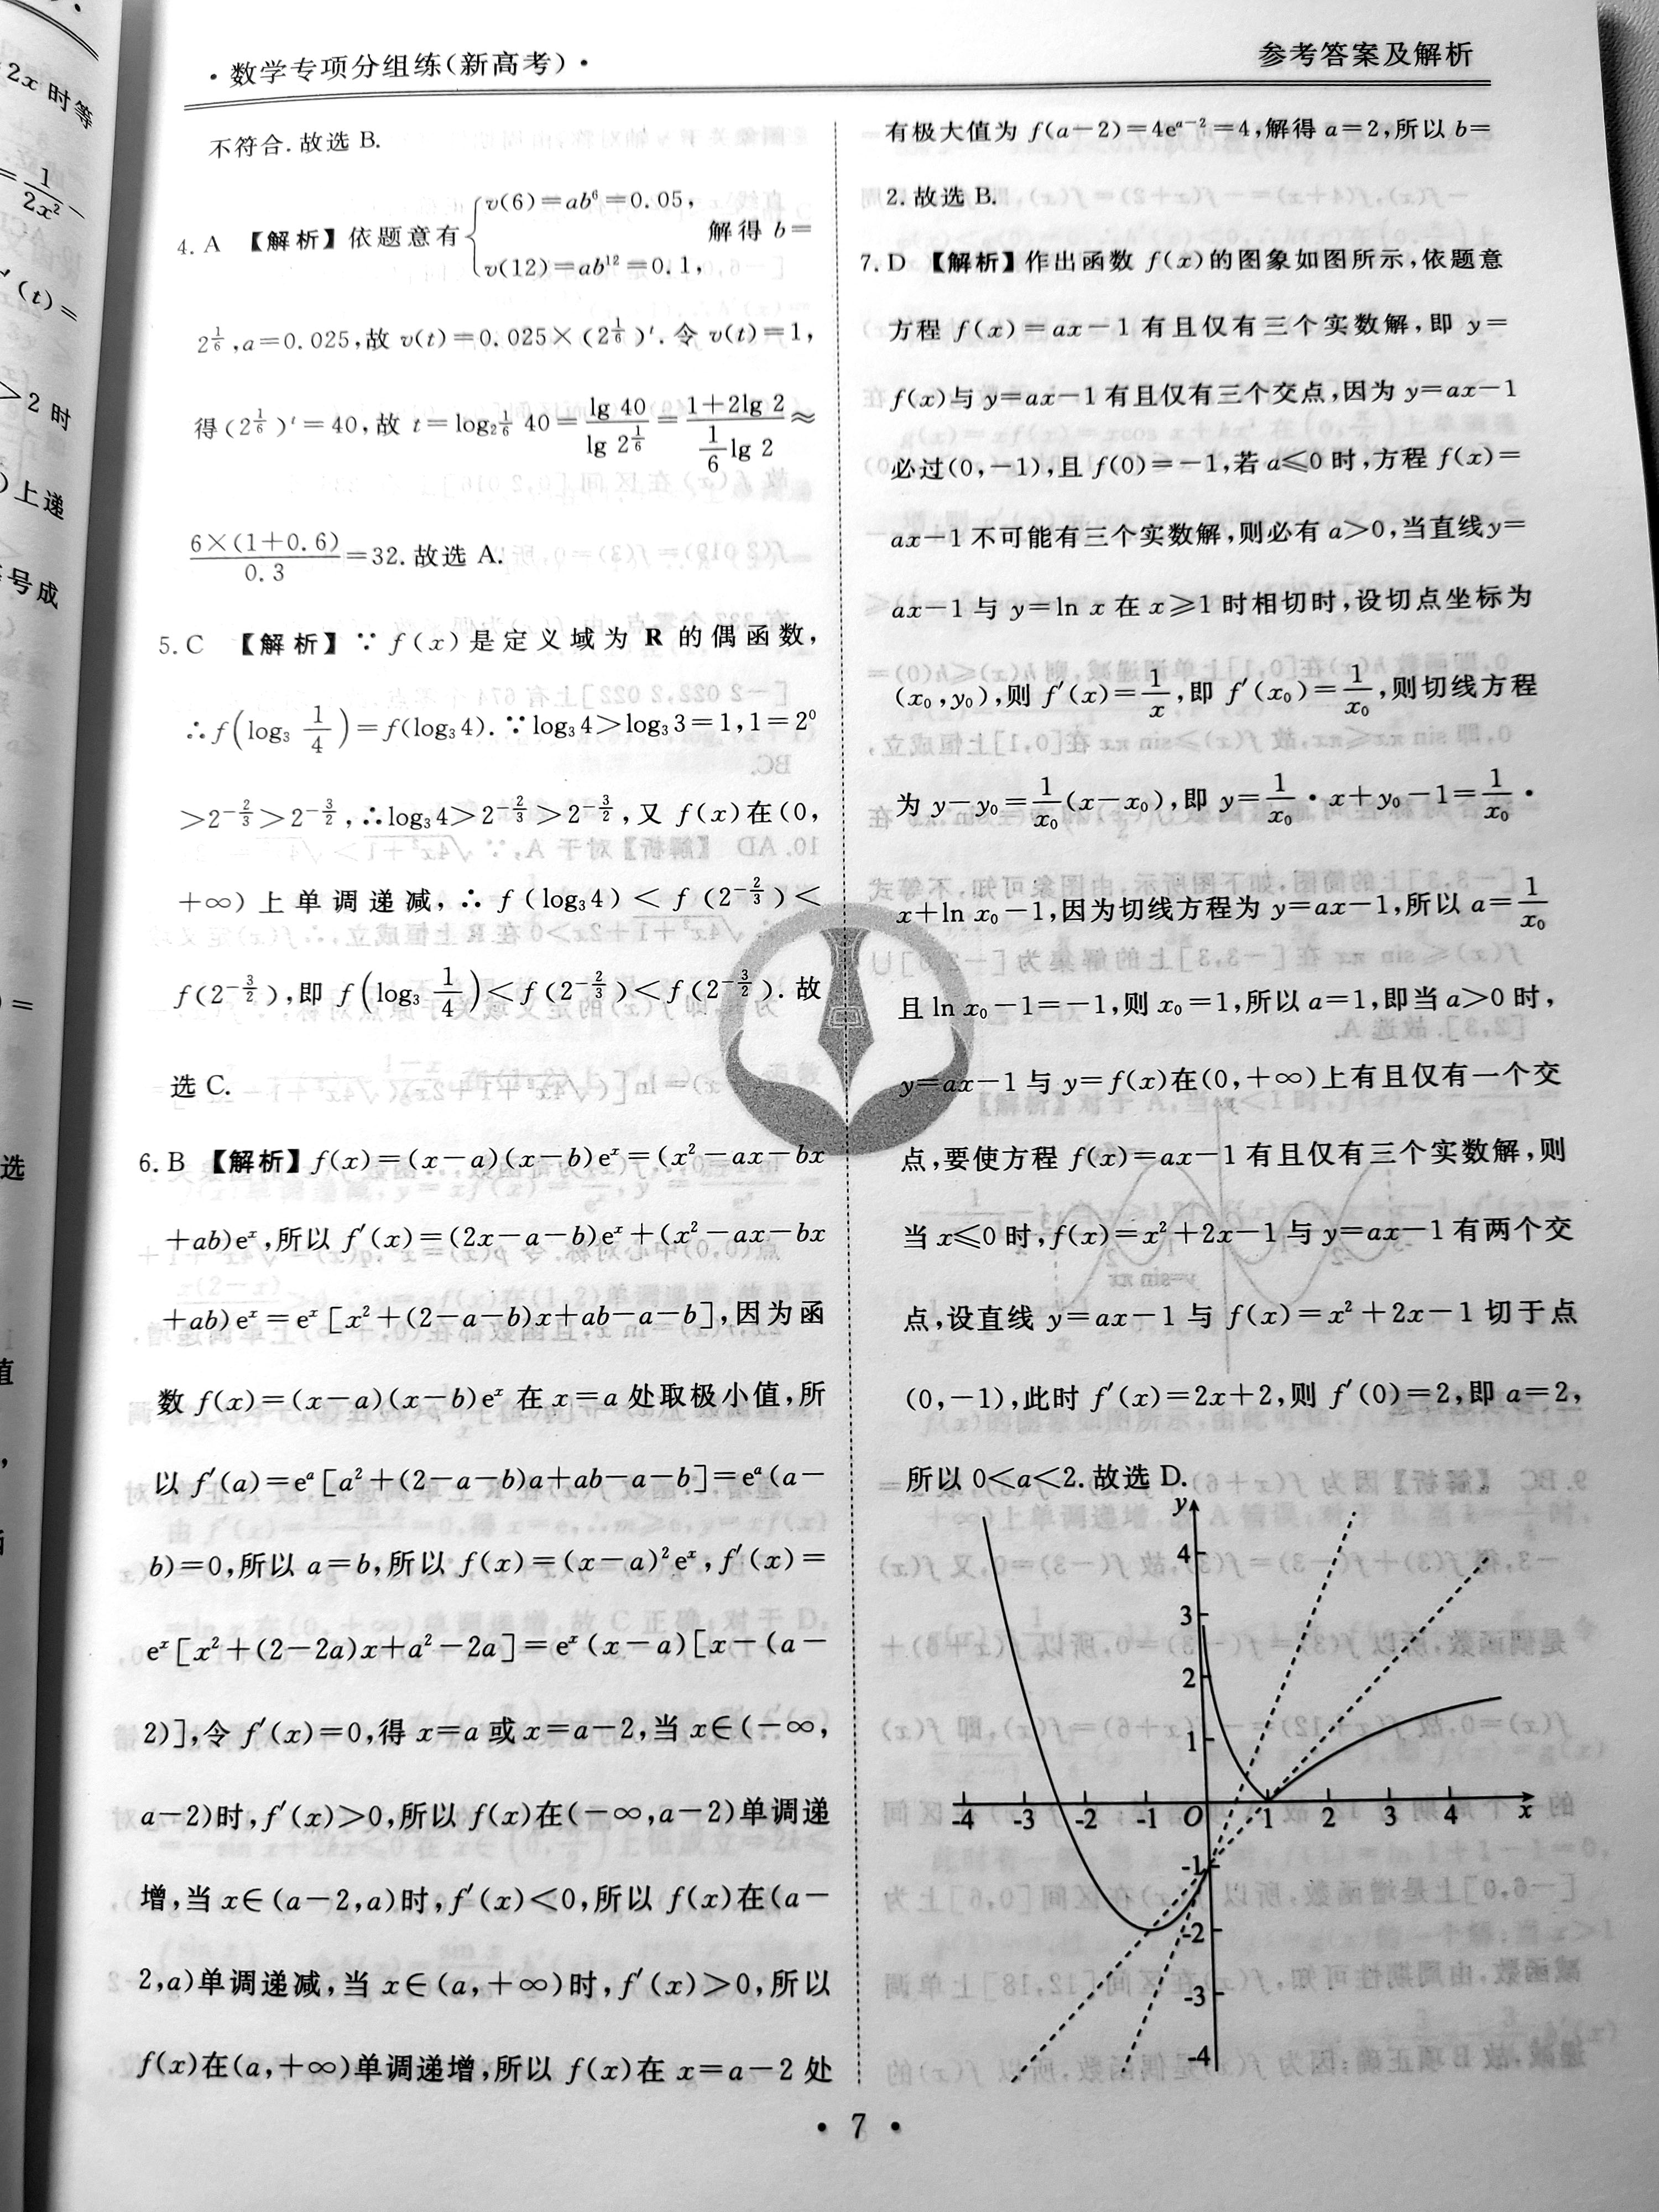 2x 时等
=1/(2x²)-
'(t)=
>2 时
)上递
号成
选
值
· 数学专项分组练(新高考) ·
参考答案及解析
不符合. 故选 B.
4. A 【解析】依题意有{v(6)=ab⁶=0.05, v(12)=ab¹²=0.1, 解得 b=
2^(1/6), a=0.025, 故 v(t)=0.025×(2^(1/6))^t. 令 v(t)=1,
得(2^(1/6))^t=40, 故 t=log_(2^(1/6)) 40=(lg 40)/(lg 2^(1/6))=(1+2lg 2)/((1/6)lg 2)≈
(6×(1+0.6))/0.3=32. 故选 A.
5. C 【解析】∵ f(x)是定义域为 R 的偶函数,
∴f(log₃ 1/4)=f(log₃4). ∵log₃4>log₃3=1, 1=2⁰
>2^(-2/3)>2^(-3/2), ∴log₃4>2^(-2/3)>2^(-3/2), 又 f(x)在(0,
+∞)上单调递减, ∴ f(log₃4)<f(2^(-2/3))<
f(2^(-3/2)), 即 f(log₃ 1/4)<f(2^(-2/3))<f(2^(-3/2)). 故
选 C.
6. B 【解析】f(x)=(x-a)(x-b)eˣ=(x²-ax-bx
+ab)eˣ, 所以 f′(x)=(2x-a-b)eˣ+(x²-ax-bx
+ab)eˣ=eˣ[x²+(2-a-b)x+ab-a-b], 因为函
数 f(x)=(x-a)(x-b)eˣ 在 x=a 处取极小值, 所
以 f′(a)=eᵃ[a²+(2-a-b)a+ab-a-b]=eᵃ(a-
b)=0, 所以 a=b, 所以 f(x)=(x-a)²eˣ, f′(x)=
eˣ[x²+(2-2a)x+a²-2a]=eˣ(x-a)[x-(a-
2)], 令 f′(x)=0, 得 x=a 或 x=a-2, 当 x∈(-∞,
a-2)时, f′(x)>0, 所以 f(x)在(-∞,a-2)单调递
增, 当 x∈(a-2,a)时, f′(x)<0, 所以 f(x)在(a-
2,a)单调递减, 当 x∈(a,+∞)时, f′(x)>0, 所以
f(x)在(a,+∞)单调递增, 所以 f(x)在 x=a-2 处
有极大值为 f(a-2)=4e^(a-2)=4, 解得 a=2, 所以 b=
2. 故选 B.
7. D 【解析】作出函数 f(x)的图象如图所示, 依题意
方程 f(x)=ax-1 有且仅有三个实数解, 即 y=
f(x)与 y=ax-1 有且仅有三个交点, 因为 y=ax-1
必过(0,-1), 且 f(0)=-1, 若 a≤0 时, 方程 f(x)=
ax-1 不可能有三个实数解, 则必有 a>0, 当直线 y=
ax-1 与 y=ln x 在 x≥1 时相切时, 设切点坐标为
(x₀,y₀), 则 f′(x)=1/x, 即 f′(x₀)=1/x₀, 则切线方程
为 y-y₀=1/x₀(x-x₀), 即 y=1/x₀·x+y₀-1=1/x₀·
x+ln x₀-1, 因为切线方程为 y=ax-1, 所以 a=1/x₀
且 ln x₀-1=-1, 则 x₀=1, 所以 a=1, 即当 a>0 时,
y=ax-1 与 y=f(x)在(0,+∞)上有且仅有一个交
点, 要使方程 f(x)=ax-1 有且仅有三个实数解, 则
当 x≤0 时, f(x)=x²+2x-1 与 y=ax-1 有两个交
点, 设直线 y=ax-1 与 f(x)=x²+2x-1 切于点
(0,-1), 此时 f′(x)=2x+2, 则 f′(0)=2, 即 a=2,
所以 0<a<2. 故选 D.
y
4
3
2
1
-4 -3 -2 -1 O 1 2 3 4 x
-1
-2
-3
-4
· 7 ·